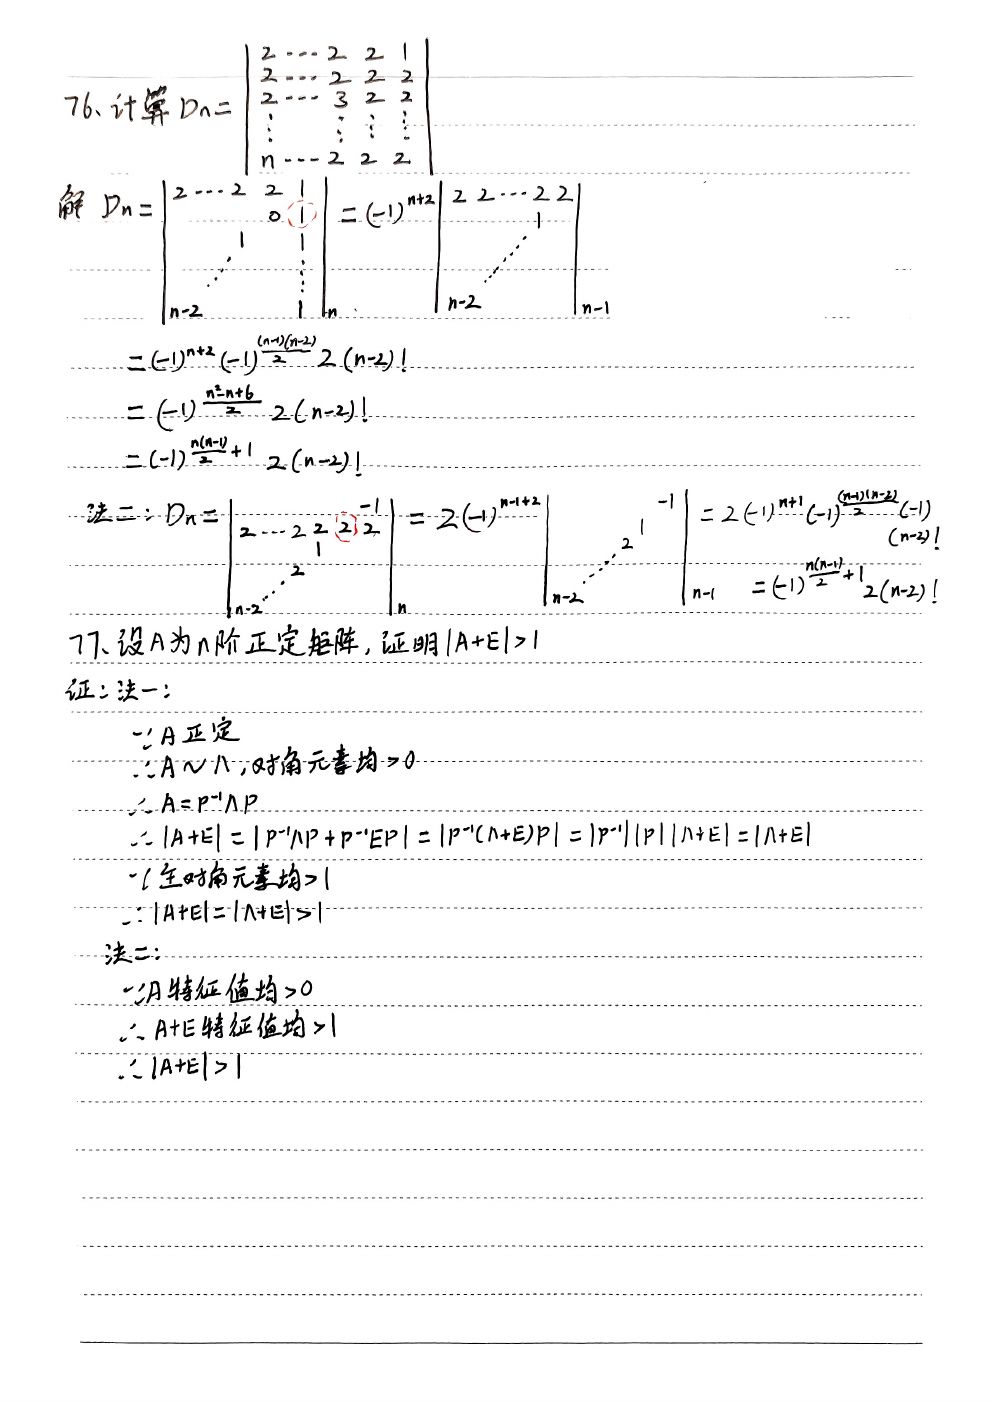 76、计算 Dn = | 2 ··· 2 2 1 |
| 2 ··· 2 2 2 |
| 2 ··· 3 2 2 |
| ⋮ ⋮ ⋮ ⋮ |
| n ··· 2 2 2 |
解 Dn = | 2 ··· 2 2 1 | = (-1)^{n+2} | 2 2 ··· 2 2 |
| 0 1 | | 1 |
| 1 1 | | ⋰ |
| ⋰ ⋮ |
| n-2 1 |n | n-2 |n-1
= (-1)^{n+2} (-1)^{\frac{(n-1)(n-2)}{2}} 2 (n-2)!
= (-1)^{\frac{n²-n+6}{2}} 2 (n-2)!
= (-1)^{\frac{n(n-1)}{2}+1} 2 (n-2)!
法二: Dn = | -1 | = 2(-1)^{n-1+2} | -1 | = 2(-1)^{n+1} (-1)^{\frac{(n-1)(n-2)}{2}} (-1) (n-2)!
| 2 ··· 2 2 2 2 | | 1 |
| 1 | | 2 |
| 2 | | ⋰ |
| ⋰ |
| n-2 |n | n-2 |n-1 = (-1)^{\frac{n(n-1)}{2}+1} 2(n-2)!
77、设A为n阶正定矩阵, 证明|A+E|>1
证: 法一:
∵A正定
∴A~Λ, 对角元素均>0
∴A=P⁻¹ΛP
∴|A+E|=|P⁻¹ΛP+P⁻¹EP|=|P⁻¹(Λ+E)P|=|P⁻¹||P||Λ+E|=|Λ+E|
∵主对角元素均>1
∴|A+E|=|Λ+E|>1
法二:
∵A特征值均>0
∴A+E特征值均>1
∴|A+E|>1